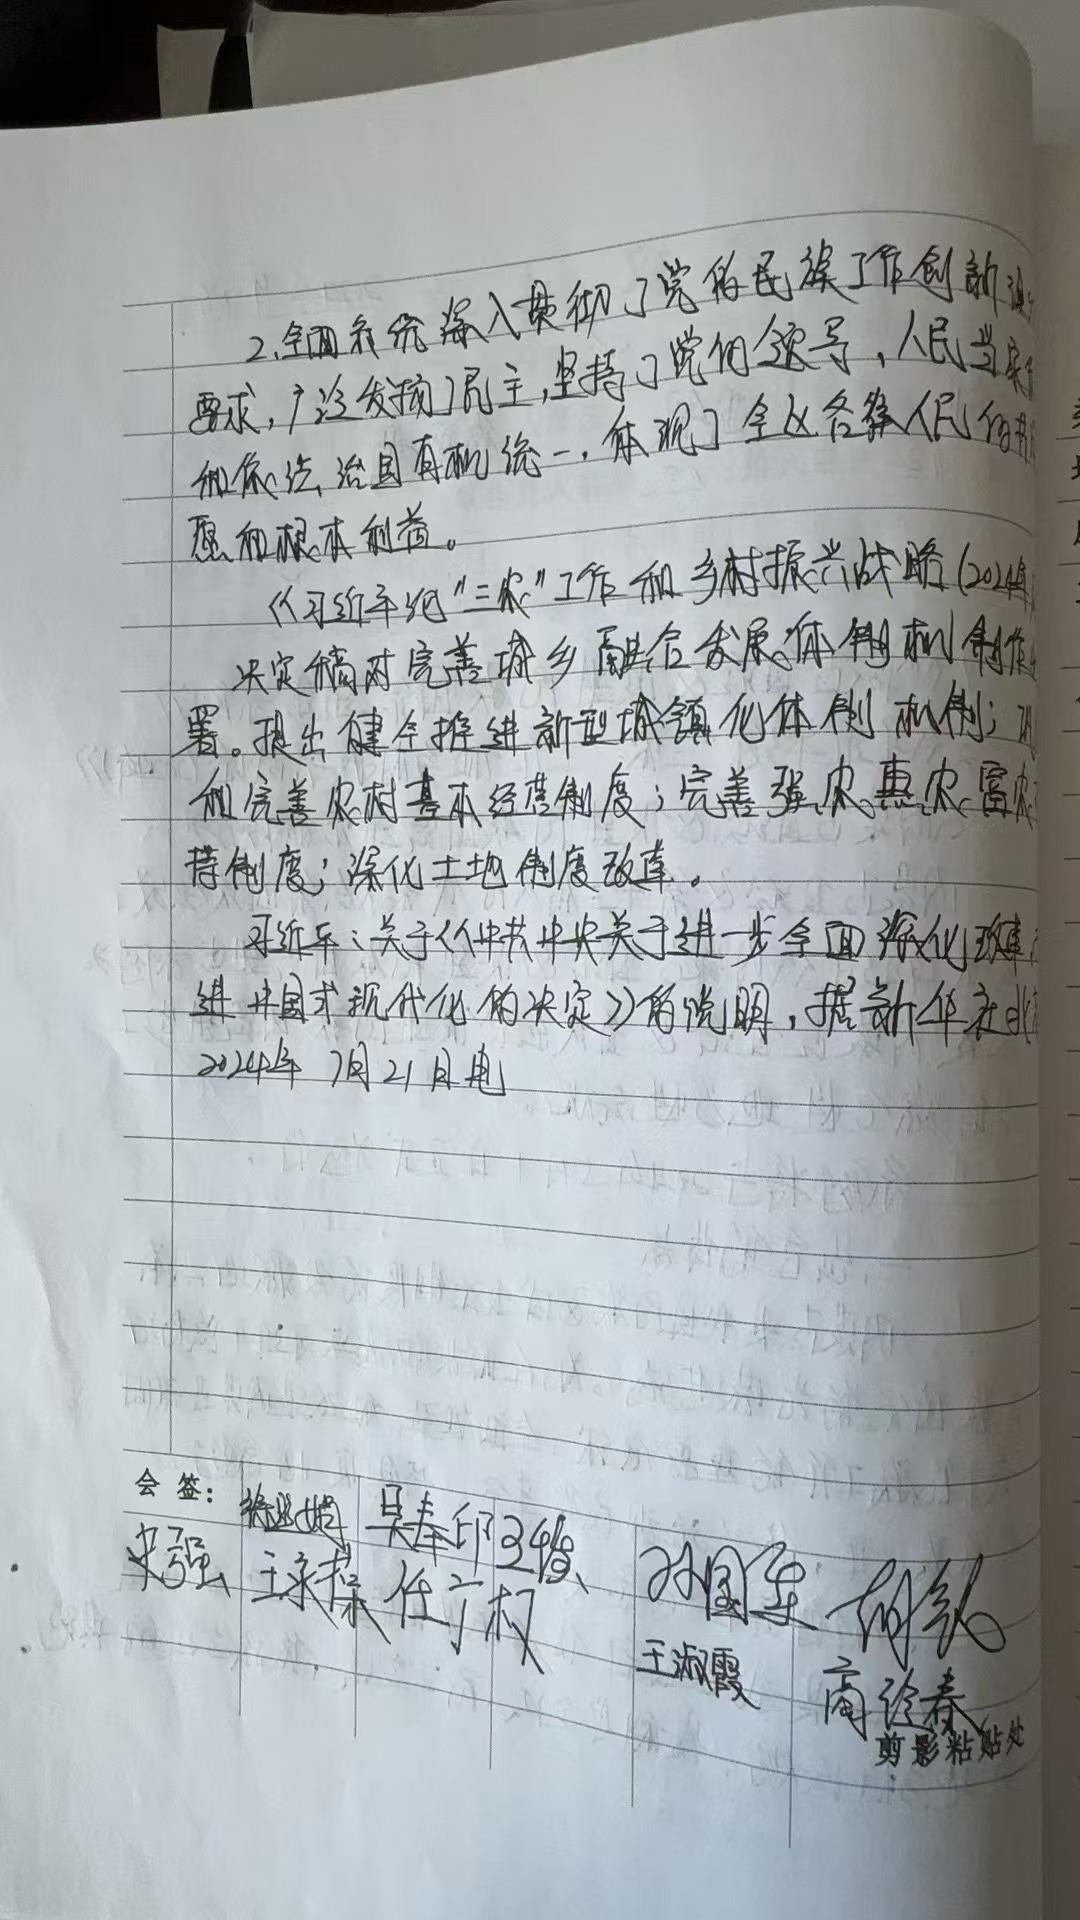 2.全面系统深入贯彻了党的民族工作创新
要求,广泛发扬了民主,坚持了党的领导,人民当家
和依法治国有机统一,体现了全区各族人民的共
愿和根本利益。
《习近平论"三农"工作和乡村振兴战略(2024年
决定稿对完善城乡融合发展体制机制作
署。提出健全推进新型城镇化体制机制;巩
和完善农村基本经营制度;完善强农惠农富农
持制度;深化土地制度改革。
习近平:关于《中共中央关于进一步全面深化改革
进中国式现代化的决定》的说明,据新华社北
2024年7月21日电
会签:
吴奉印
史强 任广权
王淑霞
剪影粘贴处